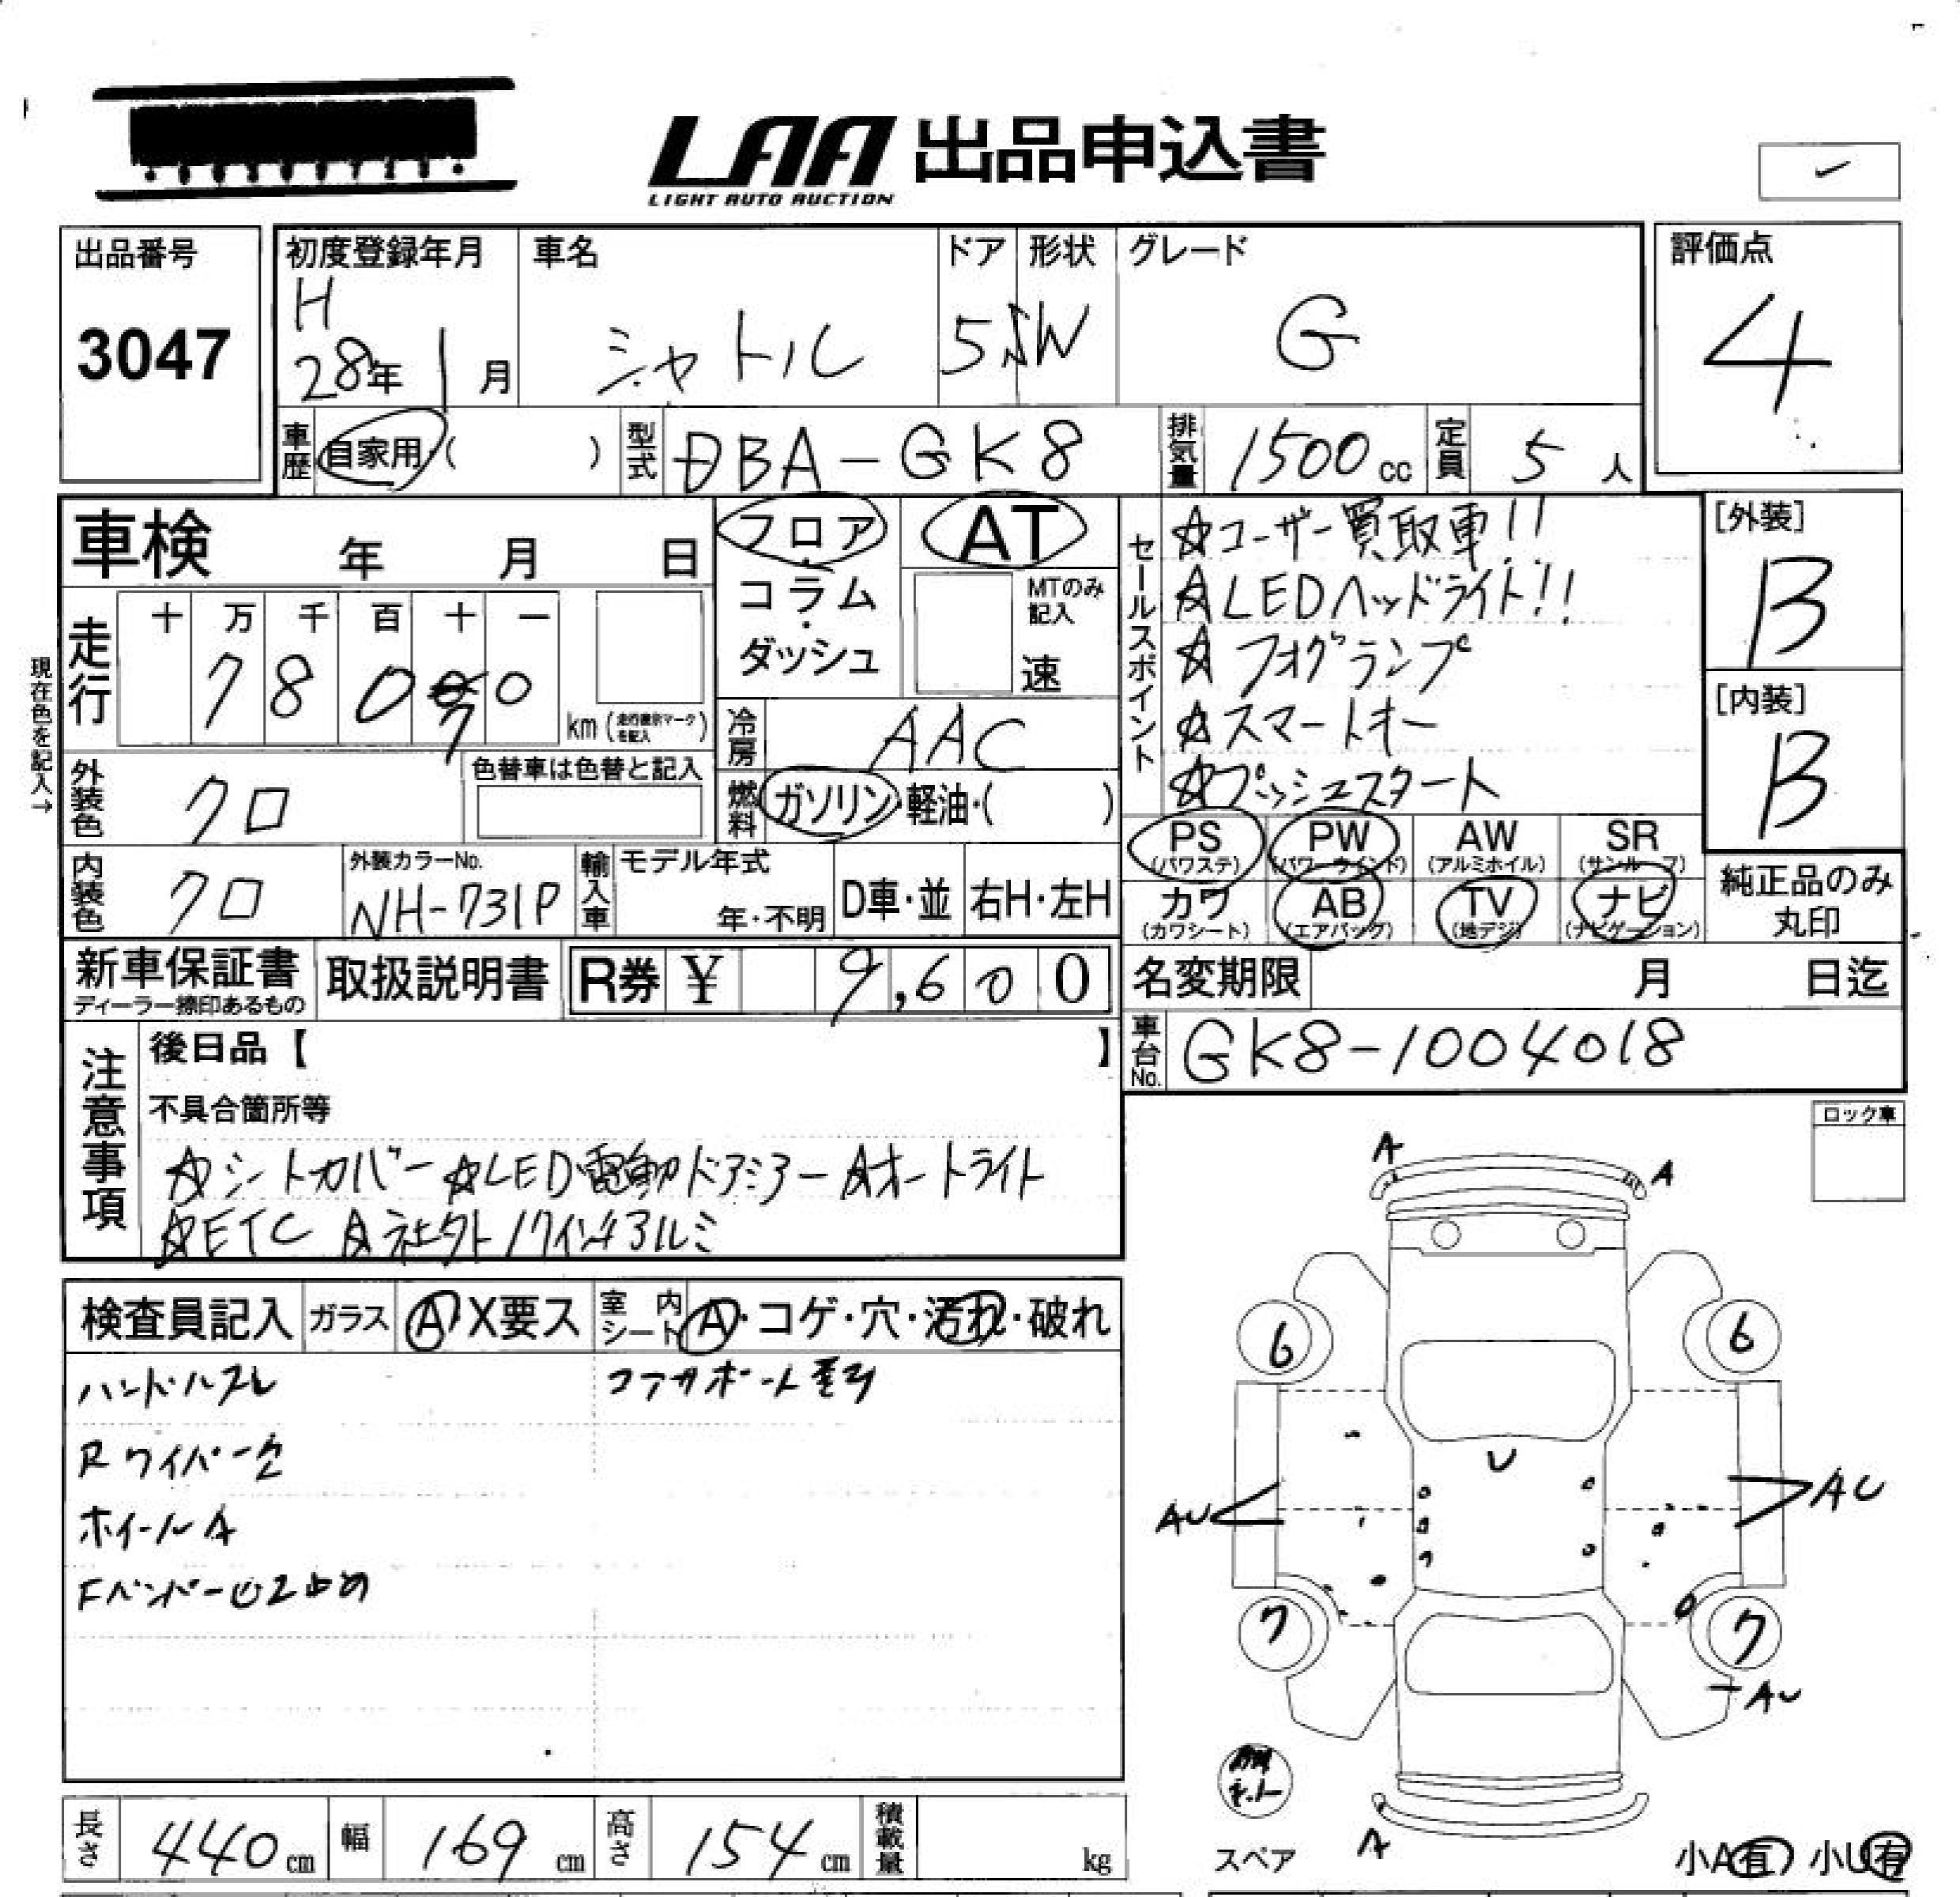 LAA 出品申込書
LIGHT AUTO AUCTION
出品番号
3047
初度登録年月
H
28年 1月
車名
シャトル
ドア
5
形状
SW
グレード
G
評価点
4
車歴 自家用・( )
型式 DBA-GK8
排気量 1500cc
定員 5人
車検 年 月 日
フロア・コラム・ダッシュ
AT
MTのみ記入
速
セールスポイント
☆ユーザー買取車!!
☆LEDヘッドライト!!
☆フォグランプ
☆スマートキー
☆プッシュスタート
[外装]
B
[内装]
B
現在色を記入→
走行
十 万 千 百 十 一
7 8 0 7 0
km(走行表示マークを記入)
冷房 AAC
燃料 ガソリン・軽油・( )
外装色 クロ
色替車は色替と記入
内装色 クロ
外装カラーNo.
NH-731P
輸入車
モデル年式
年・不明
D車・並
右H・左H
PS (パワステ)
PW (パワーウインド)
AW (アルミホイル)
SR (サンルーフ)
カワ (カワシート)
AB (エアバッグ)
TV (地デジ)
ナビ (ナビゲーション)
純正品のみ
丸印
新車保証書
ディーラー捺印あるもの
取扱説明書
R券 ¥ 9,600
名変期限 月 日迄
車台No. GK8-1004018
注意事項
後日品【 】
不具合箇所等
☆シートカバー ☆LED 電動ドアミラー ☆オートライト
☆ETC ☆社外17インチアルミ
ロック車
検査員記入
ガラス A・X要ス
室内シート A・コゲ・穴・汚れ・破れ
ハンドルスレ
Rワイパー欠
ホイールA
Fバンパー
ボード
A
A
6
6
U
AU
AU
7
7
AU
A
スペア
小A有 小U有
長さ 440cm
幅 169cm
高さ 154cm
積載量 kg